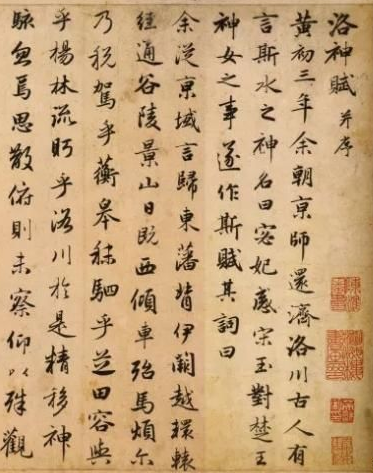 洛神賦 并序
黃初三年余朝京師還濟洛川古人有
言斯水之神名曰宓妃感宋玉對楚王
神女之事遂作斯賦其詞曰
余從京域言歸東藩背伊闕越轘轅
經通谷陵景山日既西傾車殆馬煩尔
乃稅駕乎蘅皋秣駟乎芝田容與
乎楊林流眄乎洛川於是精移神
駭忽焉思散俯則未察仰以殊觀